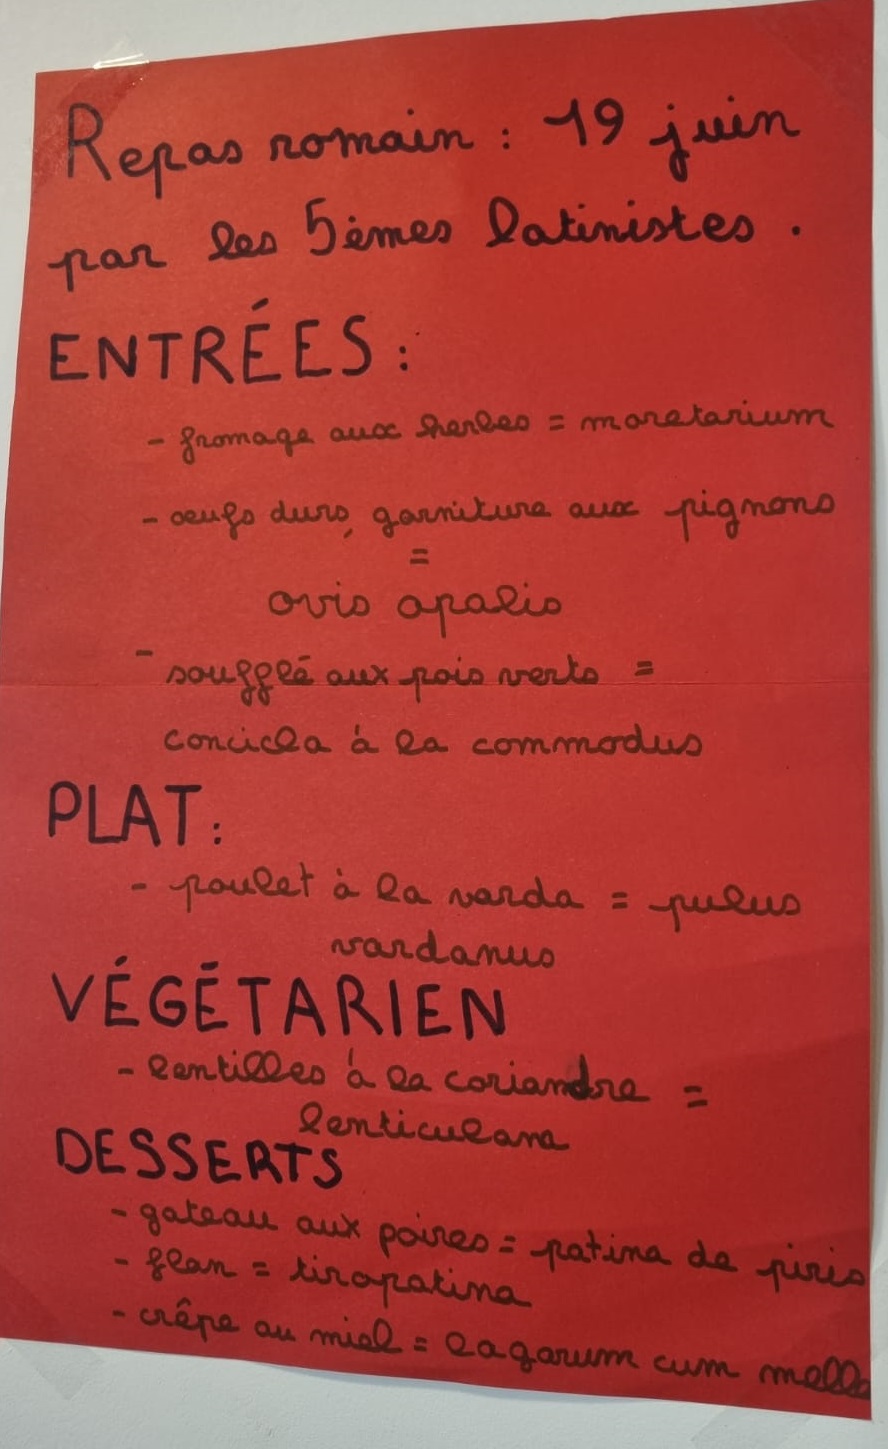 Repas romain : 19 juin
par les 5èmes latinistes .
ENTRÉES :
- fromage aux herbes = moretarium
- oeufs durs, garniture aux pignons
=
ovis apalis
- soufflé aux pois verts =
concicla à la commodus
PLAT :
- poulet à la varda = pulus
vardanus
VÉGÉTARIEN
- lentilles à la coriandre =
lenticulana
DESSERTS
- gateau aux poires = patina de piris
- flan = tiropatina
- crêpe au miel = lagarum cum melle